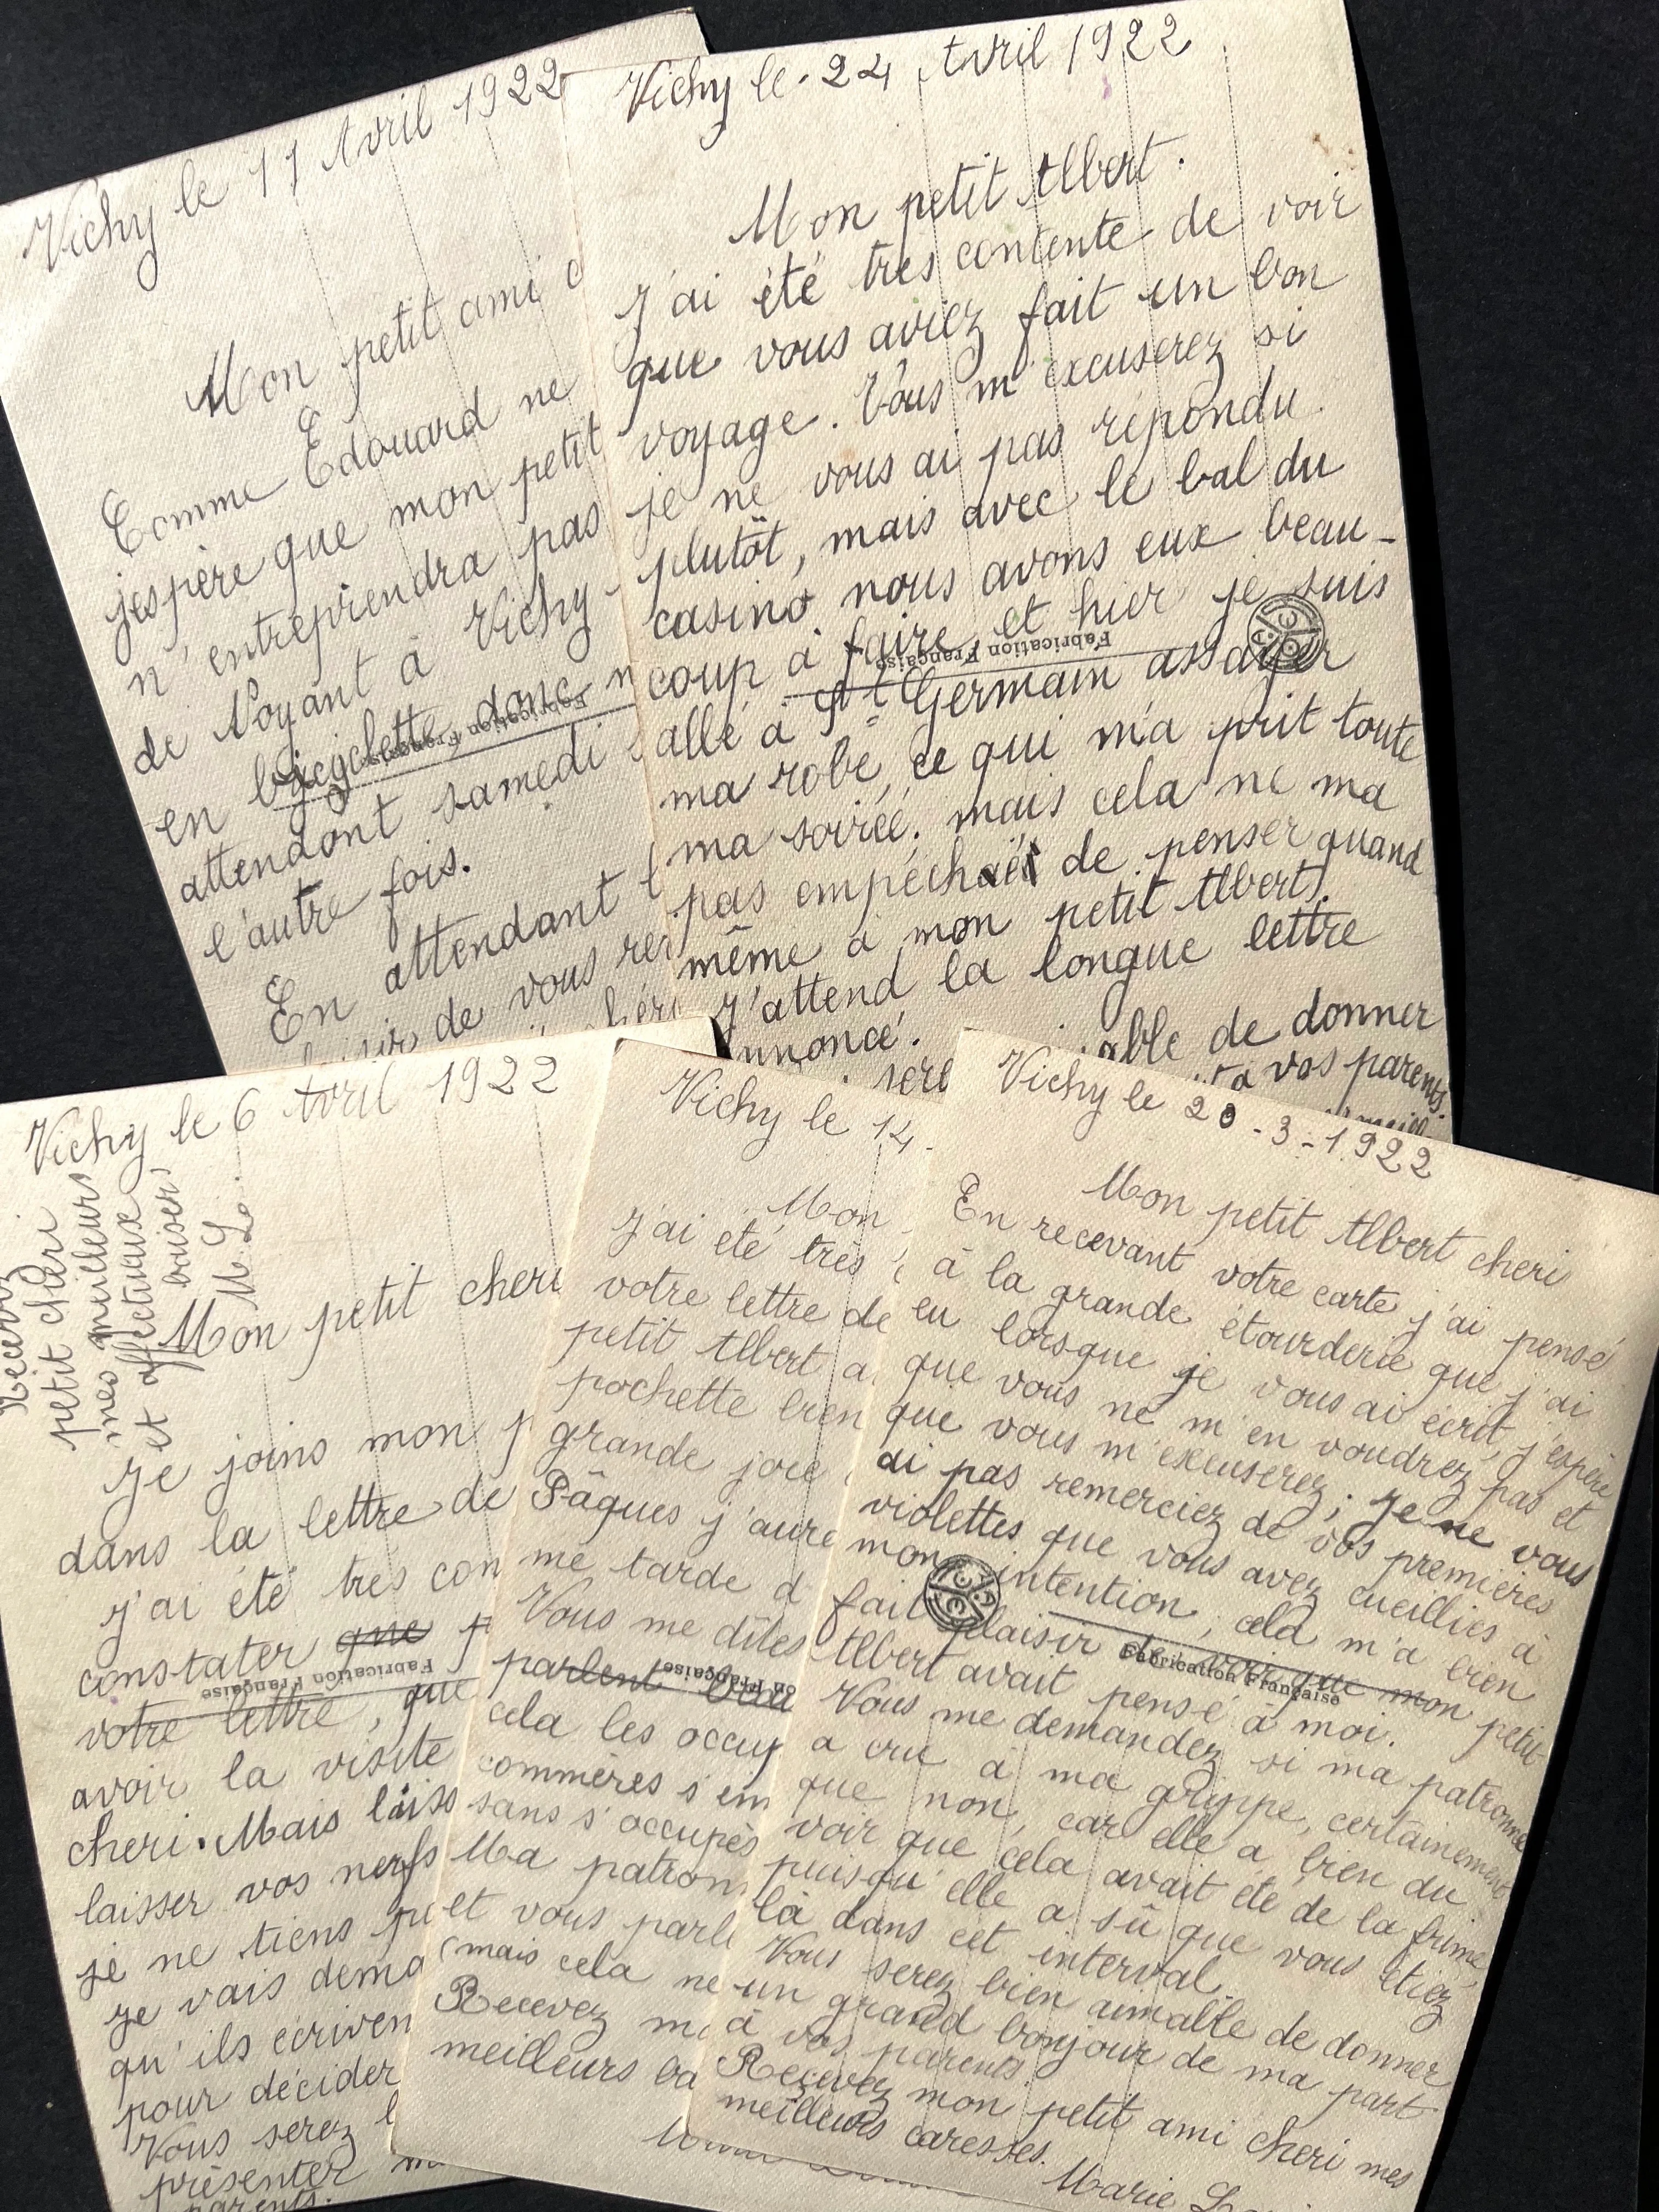 Vichy le 11 Avril 1922
Mon petit ami
Comme Edouard ne
j'espère que mon petit
n'entreprendra pas
de Noyant à Vichy
en bicyclette, donc
attendont samedi
l'autre fois.
En attendant
de vous
Fabrication Française
Vichy le 24 Avril 1922
Mon petit Albert.
J'ai été très contente de voir
que vous aviez fait un bon
voyage. Vous m'excuserez si
je ne vous ai pas répondu
plutôt, mais avec le bal du
casino nous avons eux beau-
coup à faire, et hier je suis
allé à St Germain assayer
ma robe, ce qui m'a prit toute
ma soirée. mais cela ne ma
pas empéchait de penser quand
même à mon petit Albert.
J'attend la longue lettre
nnoncé.
sere
able de donner
à vos parents.
Fabrication Française
Vichy le 6 Avril 1922
Recevez
petit chéri
mes meilleurs
et affectueux
baisers
M. L.
Mon petit cheri
Je joins mon
dans la lettre de
J'ai été très con
constater que
votre lettre, que
avoir la visite
cheri. Mais laiss
laisser vos nerfs
je ne tiens
Je vais dema
qu'ils écriven
pour décider
Vous serez
présenter
parents.
Fabrication Française
Vichy le 14
Mon
J'ai été très
votre lettre de
petit Albert a
pochette bien
grande joie
Pâques j'aure
me tarde d
Vous me dîtes
parlent
cela les occup
commères s'em
sans s'occupès
Ma patron
et vous parle
(mais cela ne
Recevez
meilleurs ba
on Française
Vichy le 20-3-1922
Mon petit Albert cheri
En recevant votre carte j'ai pensé
à la grande étourderie que j'ai
eu lorsque je vous ai écrit, j'espère
que vous ne m'en voudrez pas et
que vous m'excuserez; je ne vous
ai pas remerciez de vos premières
violettes que vous avez cueillies à
mon intention, cela m'a bien
fait plaisir de voir que mon petit
Albert avait pensé à moi.
Vous me demandez si ma patronne
a cru à ma grippe, certainement
que non, car elle a bien du
voir que cela avait été de la frime,
puisqu'elle a sû que vous étiez
là dans cet interval.
Vous serez bien aimable de donner
un grand bonjour de ma part
à vos parents.
Recevez mon petit ami cheri mes
meilleurs caresses.
Marie
Fabrication Française